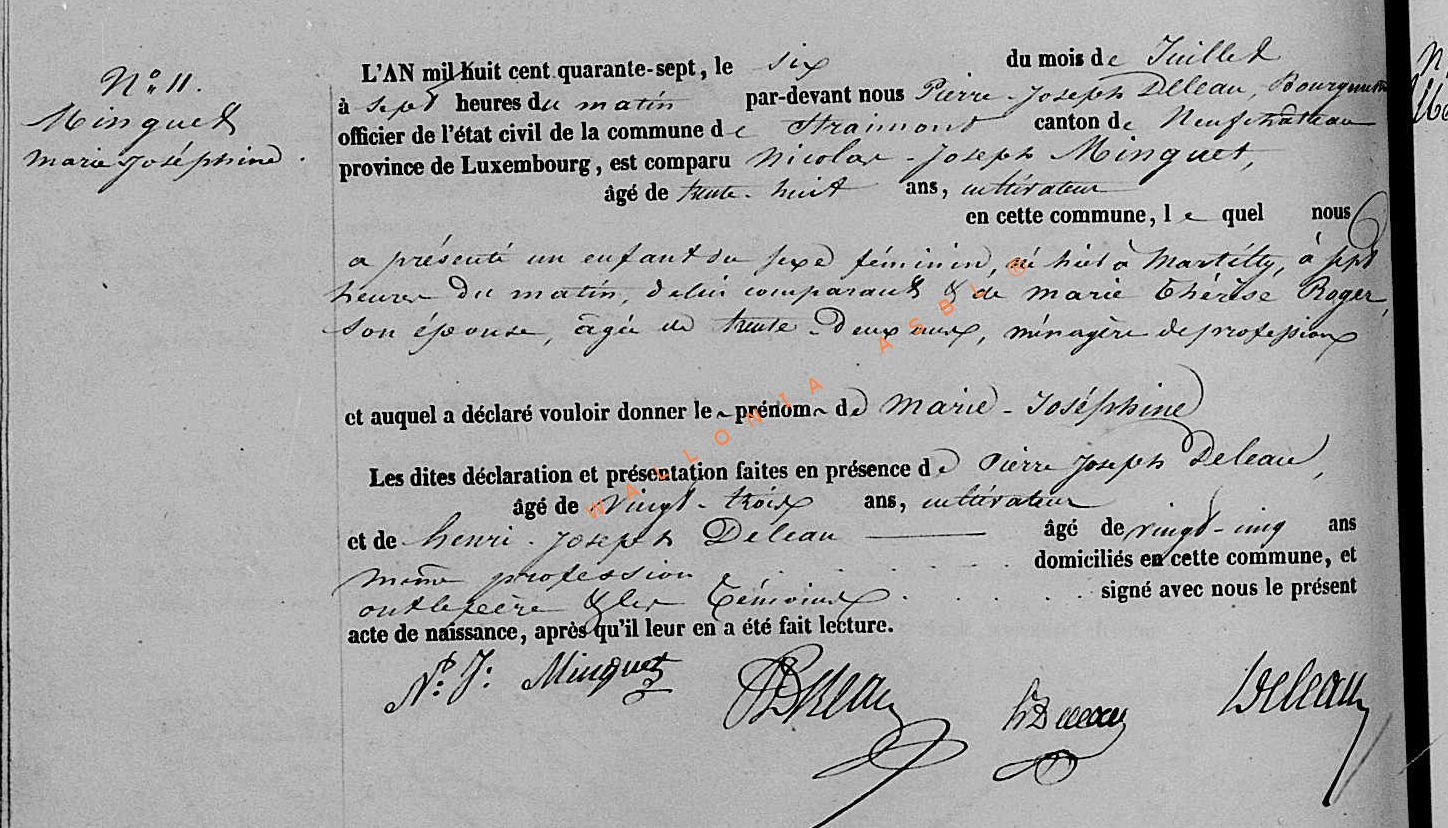 N° 11.
Minguet
Marie Joséphine.
L'AN mil huit cent quarante-sept, le six du mois de Juillet
à sept heures du matin par-devant nous Pierre-Joseph Deleau, Bourgmestre
officier de l'état civil de la commune de Straimont canton de Neufchateau
province de Luxembourg, est comparu Nicolas-Joseph Minguet,
âgé de trente-huit ans, cultivateur
en cette commune, le quel nous
a présenté un enfant du sexe féminin, né hier à Martilly, à sept
heures du matin, de lui comparant & de Marie Thérèse Roger,
son épouse, âgée de trente-deux ans, ménagère de profession
et auquel a déclaré vouloir donner le prénom de Marie-Joséphine
Les dites déclaration et présentation faites en présence de Pierre Joseph Deleau,
âgé de vingt-trois ans, cultivateur
et de henri-Joseph Deleau âgé de vingt-cinq ans
même profession domiciliés en cette commune, et
ont le père & les témoins signé avec nous le présent
acte de naissance, après qu'il leur en a été fait lecture.
N. J. Minguet PJDeleau hDeleau Deleau
WALLONIA ASBL ®